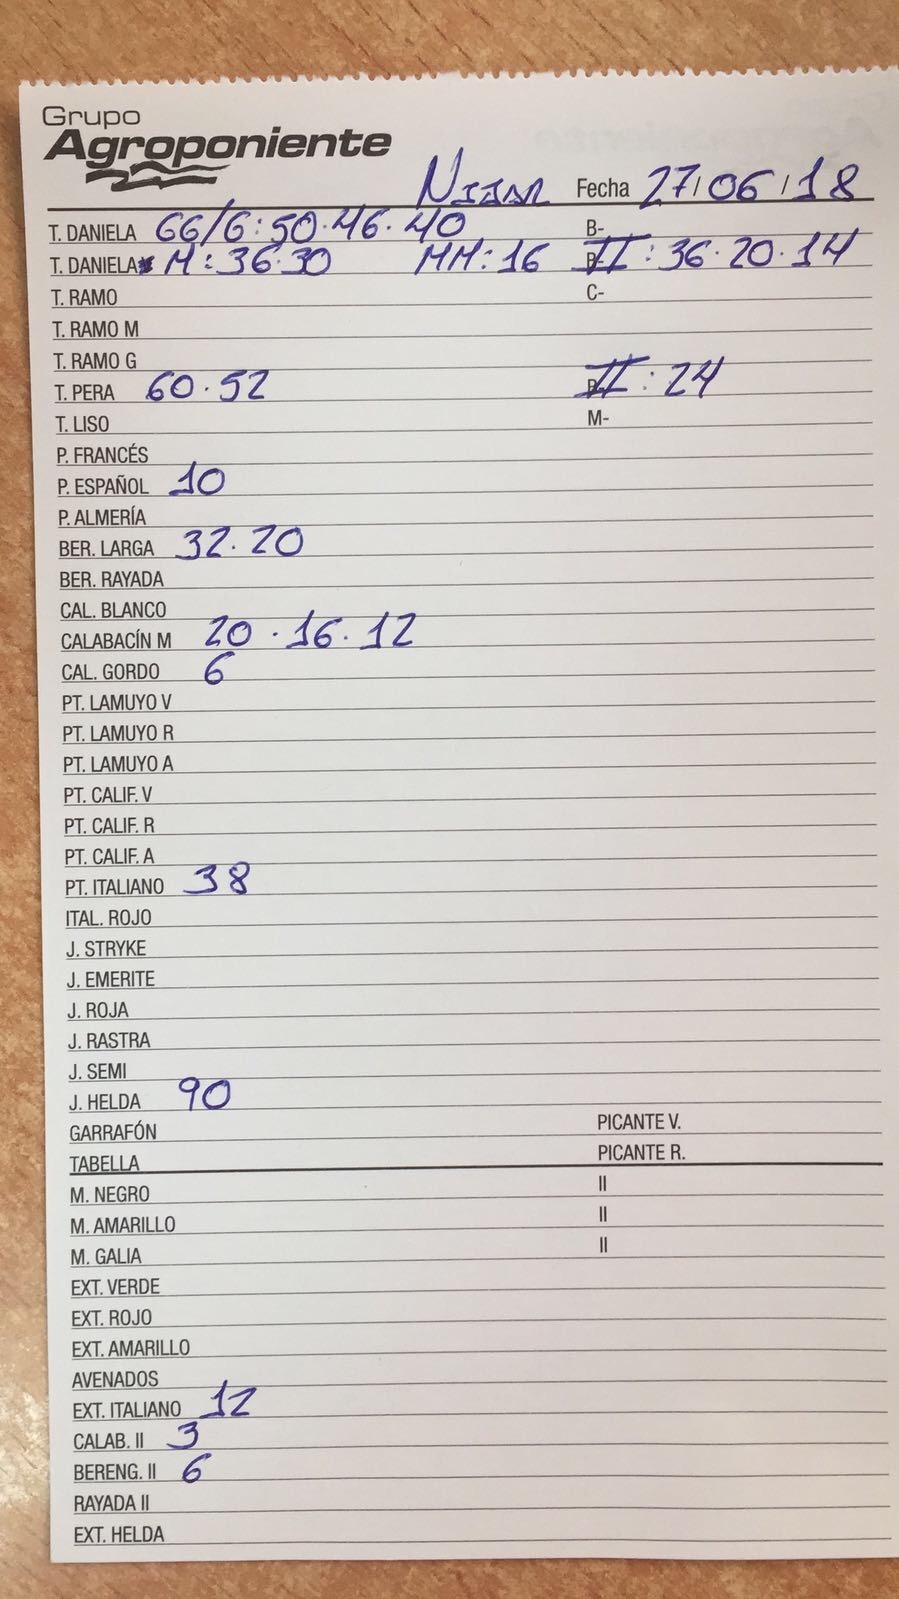 Grupo
Agroponiente
NIJAR Fecha 27/06/18
T. DANIELA GG/G: 50.46.40 B-
T. DANELA M: 36.30 MM: 16 II: 36.20.14
T. RAMO C-
T. RAMO M
T. RAMO G
T. PERA 60.52 II: 24
T. LISO M-
P. FRANCÉS
P. ESPAÑOL 10
P. ALMERÍA
BER. LARGA 32.20
BER. RAYADA
CAL. BLANCO
CALABACÍN M 20.16.12
CAL. GORDO 6
PT. LAMUYO V
PT. LAMUYO R
PT. LAMUYO A
PT. CALIF. V
PT. CALIF. R
PT. CALIF. A
PT. ITALIANO 38
ITAL. ROJO
J. STRYKE
J. EMERITE
J. ROJA
J. RASTRA
J. SEMI
J. HELDA 90
GARRAFÓN PICANTE V.
TABELLA PICANTE R.
M. NEGRO II
M. AMARILLO II
M. GALIA II
EXT. VERDE
EXT. ROJO
EXT. AMARILLO
AVENADOS
EXT. ITALIANO 12
CALAB. II 3
BERENG. II 6
RAYADA II
EXT. HELDA